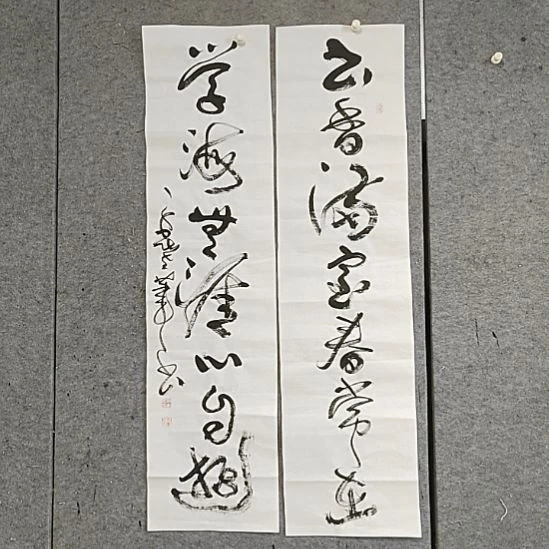 书香满室春常在
学海无涯心自游